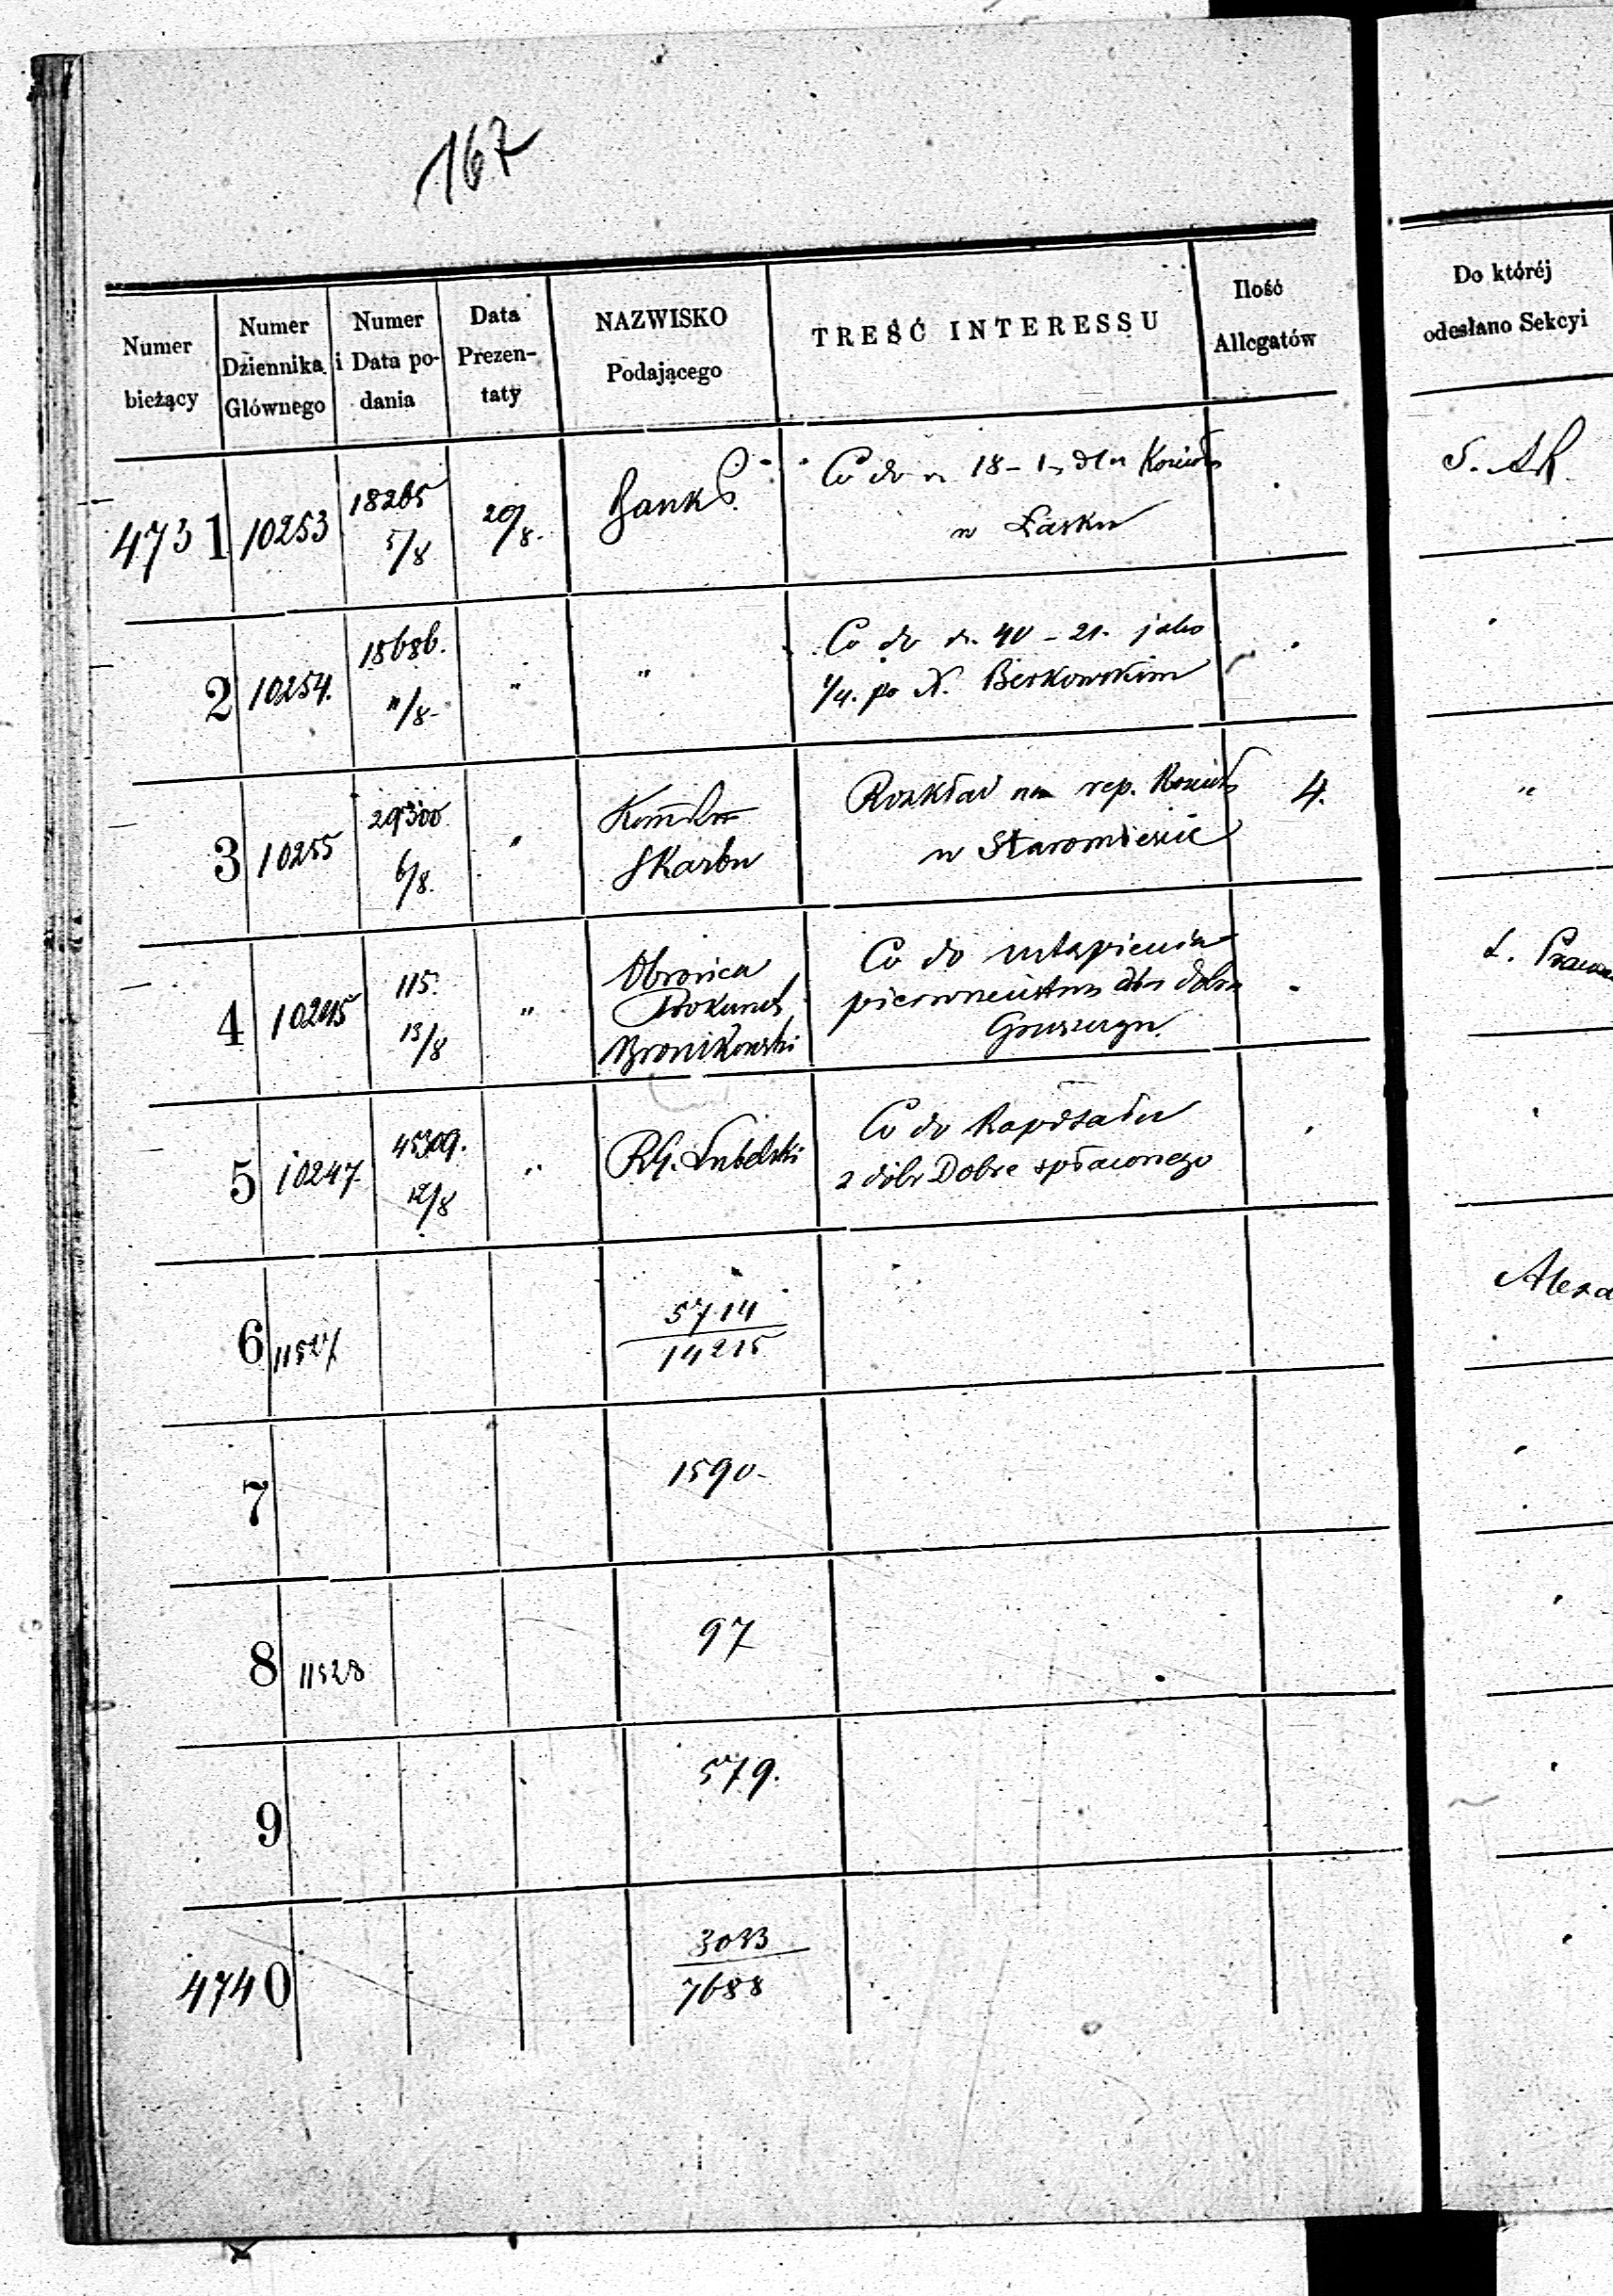 167
Numer bieżący
Numer Dziennika Głównego
Numer i Data podania
Data Prezentaty
NAZWISKO Podającego
TREŚĆ INTERESSU
Ilość Allegatów
Do któréj odesłano Sekcyi
4731 10253 18265 5/8 20/8. Bank P. Co do rs. 18 - 1 dla Kościoła
w Łasku
2 10254. 18686. "/8- " " Co do rs. 40 - 21. jako
1/4. po N. Berkowskim
3 10255 29300 6/8. " Skarbu Rozkład na rep. Kościoła 4.
w Staromieście "
4 10245 115. 13/8 " Obrońca Prokurat. Bronikowski Co do ustąpienia
pierwszeństwa dla dóbr
Gruszczyn
5 10247 45309. 12/8 " R.G. Lubelski Co do Kapitału
z dóbr Dobre spłaconego
6 11527 5714
14215
7 1590-
8 11528 97
9 579.
4740 3033
7688